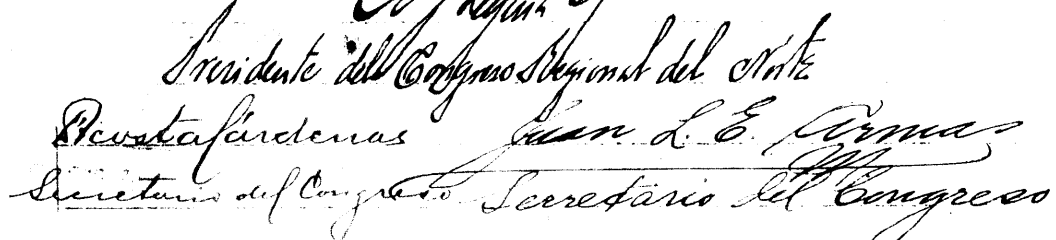 Presidente del Congreso Regional del Norte
Acosta Cárdenas Juan L. E. Armas
Secretario del Congreso Secretario del Congreso